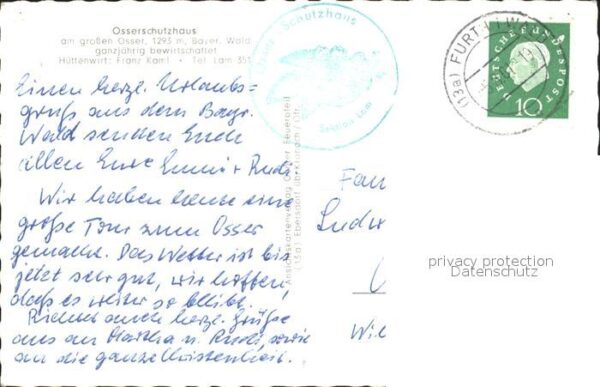 Osserschutzhaus
am großen Osser, 1293 m, Bayer. Wald
ganzjährig bewirtschaftet
Hüttenwirt: Franz Kaml · Tel. Lam 351
Schutzhaus
Sektion Lam
(13a) FURTH I WALD
DEUTSCHE BUNDESPOST
10
Einen herzl. Urlaubs-
gruß aus dem Bayr.
Wald senden Euch
allen Eure Emmi + Rudi.
Wir haben heute eine
große Tour zum Osser
gemacht. Das Wetter ist bis
jetzt sehr gut, wir hoffen,
daß es weiter so bleibt.
Richtet auch herzl. Grüße
aus an Martha u. Rudi, sowie
an die ganze
Ansichtskartenverlag Feuereteil
(13a) Ebersdorf über
Fam
Ludw
privacy protection
Datenschutz